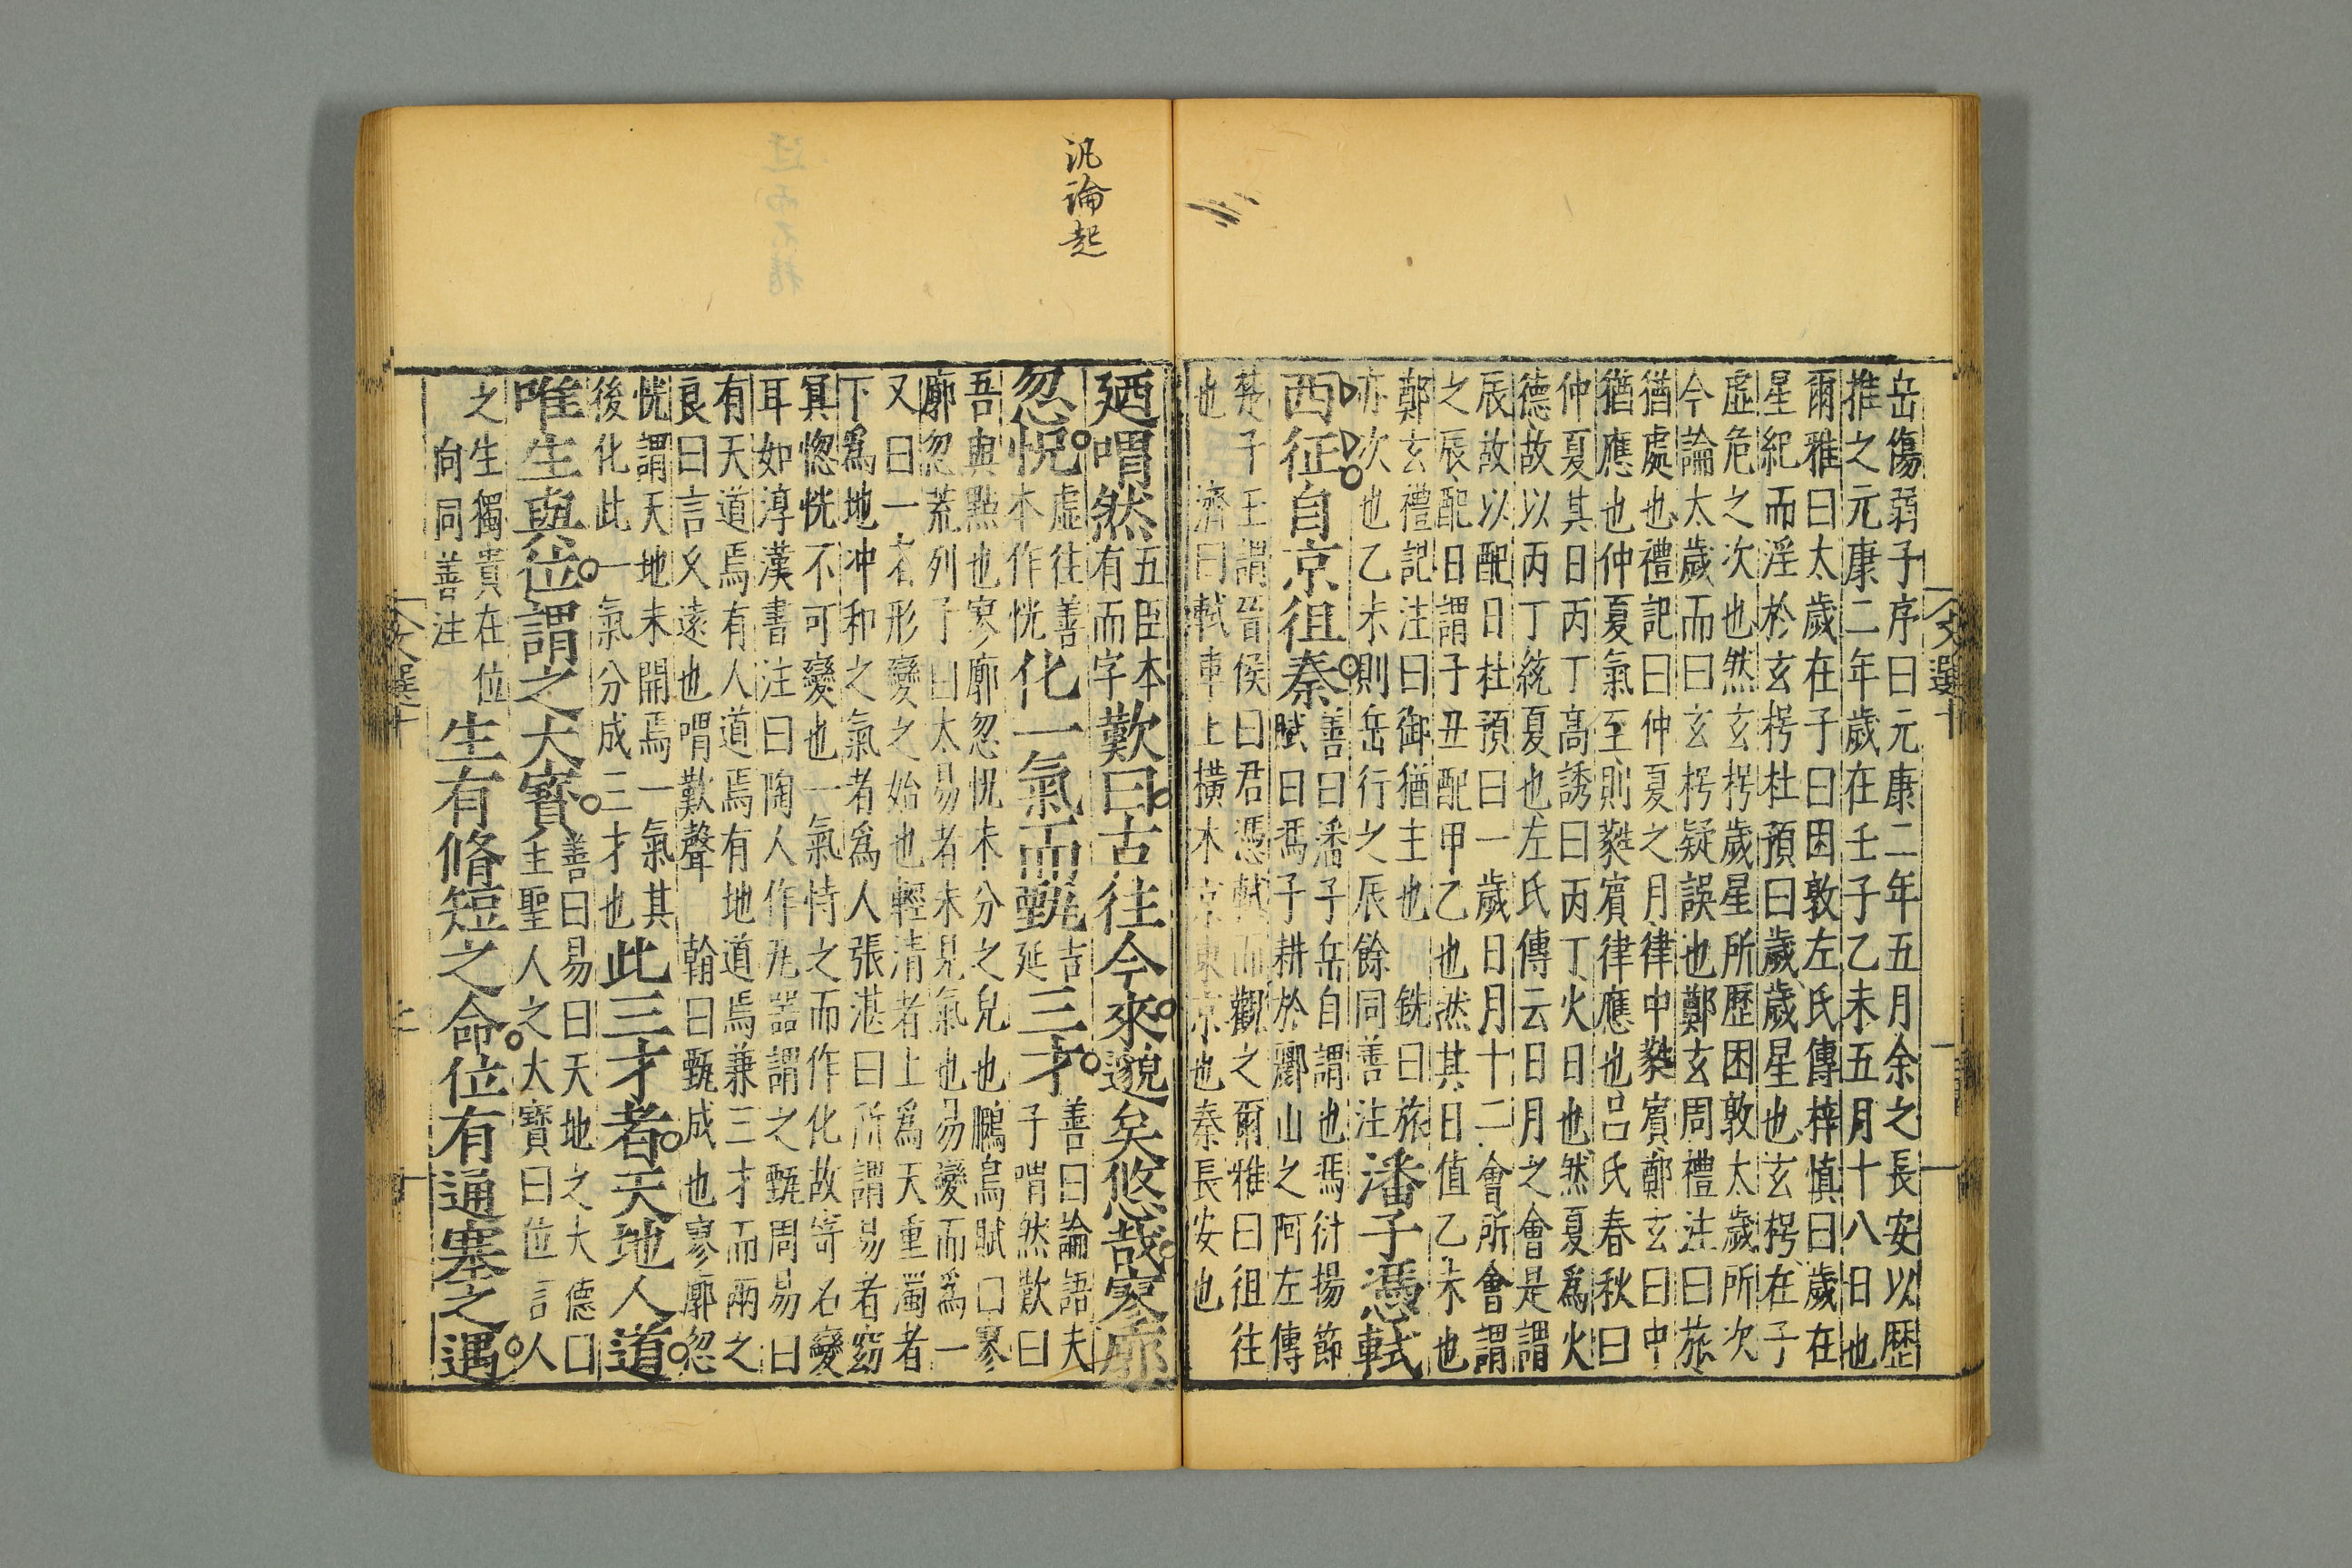 岳傷弱子序曰元康二年五月余之長安以歷
推之元康二年歲在壬子乙未五月十八日也
爾雅曰太歲在子曰困敦左氏傳梓慎曰歲在
星紀而淫於玄枵杜預曰歲歲星也玄枵在子
虛危之次也然玄枵歲星所歷困敦太歲所次
今論太歲而曰玄枵疑誤也鄭玄周禮注曰旅
猶處也禮記曰仲夏之月律中蕤賓鄭玄曰中
猶應也仲夏氣至則蕤賓律應也呂氏春秋曰
仲夏其日丙丁高誘曰丙丁火日也然夏為火
德故以丙丁統夏也左氏傳云日月之會是謂
辰故以配日杜預曰一歲日月十二會所會謂
之辰配日謂子丑配甲乙也然其日值乙未也
鄭玄禮記注曰御猶主也 銑曰旅
亦次也乙未則岳行之辰餘同善注
潘子憑軾
西征自京徂秦
善曰潘子岳自謂也馮衍揚節
賦曰馮子耕於酈山之阿左傳
楚子玉謂晉侯曰君憑軾而觀之爾雅曰徂往
也 濟曰軾車上橫木京東京也秦長安也
文選十
汎論起
廼喟然
五臣本
有而字
歎曰古往今來邈矣悠哉寥廓
忽怳
虛往善
本作恍
化一氣而甄
吉延
三才
善曰論語夫
子喟然歎曰
吾與點也寥廓忽怳未分之皃也鵩鳥賦曰寥
廓忽荒列子曰太易者未見氣也易變而為一
又曰一者形變之始也輕清者上為天重濁者
下為地沖和之氣者為人張湛曰所謂易者窈
冥惚恍不可變也一氣恃之而作化故寄名變
耳如淳漢書注曰陶人作瓦器謂之甄周易曰
有天道焉有人道焉有地道焉兼三才而兩之
良曰言乆遠也喟歎聲 翰曰甄成也寥廓忽
恍謂天地未開焉一氣其
後化此一氣分成三才也
此三才者天地人道
唯生與位謂之大寶
善曰易曰天地之大德曰
生聖人之大寶曰位言人
之生獨貴在位
向同善注
生有脩短之命位有通塞之遇
文選十